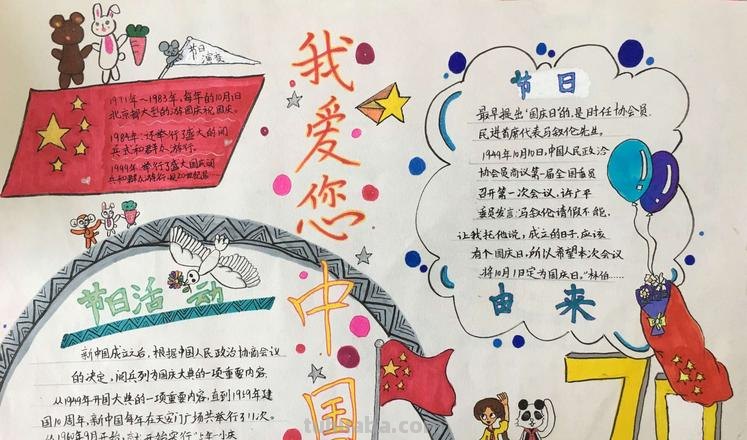 节日
演变
1971年~1983年,每年的10月1日
北京都大型的游园庆祝国庆。
1984年,还举行了盛大的阅
兵式和群众游行。
1999年举行了盛大国庆阅
兵和群众游行,是20世纪最
我爱您中国
节日
最早提出'国庆日'的,是时任协会员.
民进首席代表马叙伦先生。
1949年10月10日,中国人民政治
协会员商议第一届全国委员
召开第一次会议,许广平
委员发言:马叙伦请假不能,
让我托他说,成立的日子,应该
有个国庆日,所以希望本次会议
将10月1日定为国庆日。"林伯......
由来
节日活动
新中国成立之后,根据中国人民政治协商会议
的决定,阅兵列为国庆大典的一项重要内容.
从1949年开国大典的一项重要内容,直到1959年建
国10周年,新中国每年在天安门广场共举行了11次。
从1960年9月开始,
70